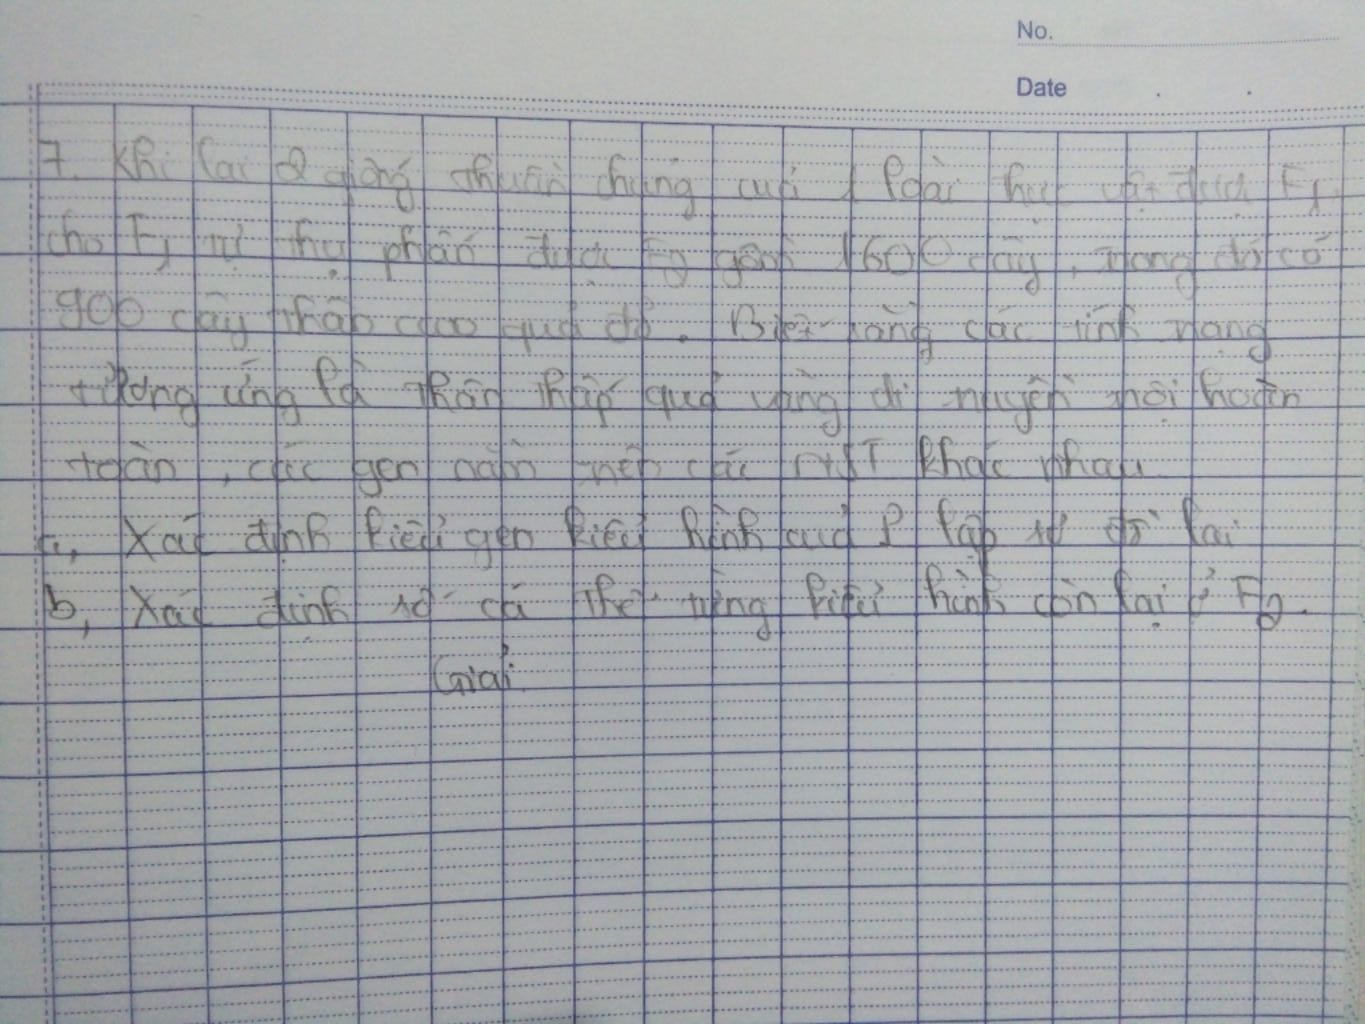 No.
Date
7. Khi lai 2 giống thuần chủng của 1 loài thực vật được F1.
cho F1 tự thụ phấn được F2 gồm 1600 cây, trong đó có
900 cây thân cao quả đỏ. Biết rằng các tính trạng
tương ứng là thân thấp quả vàng di truyền trội hoàn
toàn, các gen nằm trên các NST khác nhau
a, Xác định kiểu gen kiểu hình của P lập sơ đồ lai
b, Xác định số cá thể từng kiểu hình còn lại ở F2.
Giải